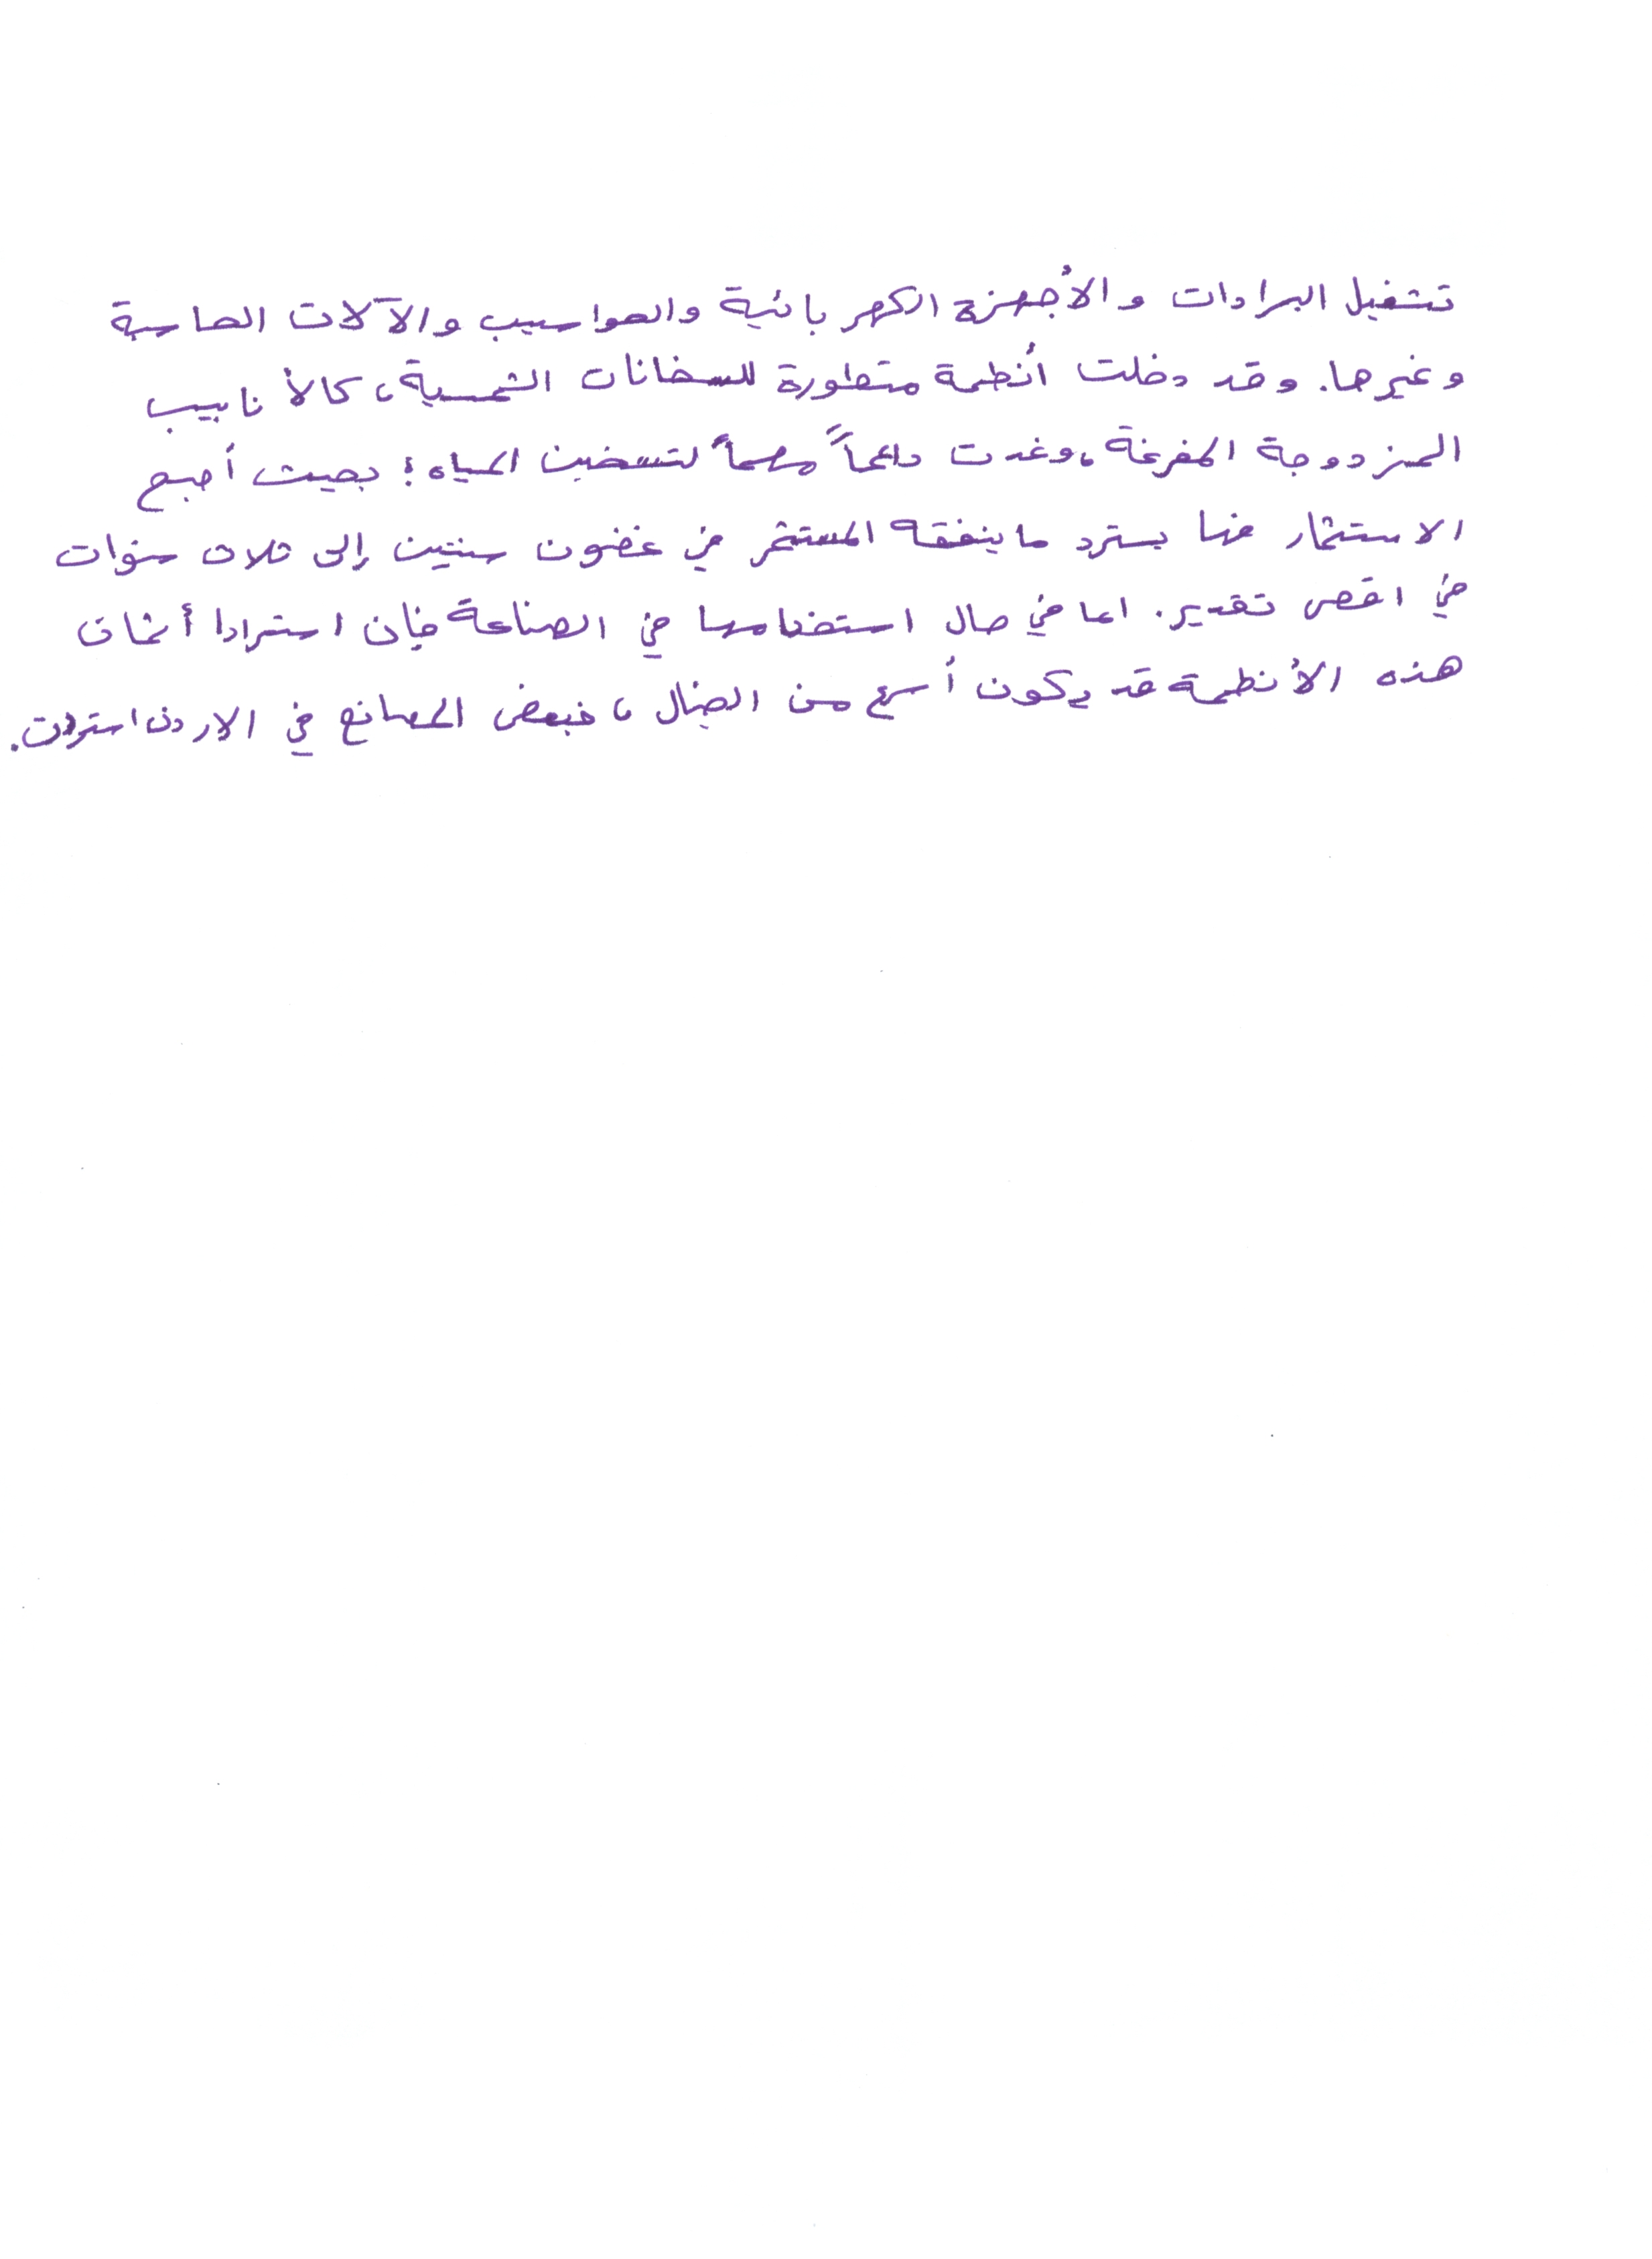 تشغيل البرادات والأجهزة الكهربائية والحواسيب والآلات الحاسبة
وغيرها. وقد دخلت أنظمة متطورة للسخانات الشمسية، كالأنابيب
المزدوجة المفرغة، وغدت داعماً مهماً لتسخين المياه؛ بحيث أصبح
الاستثمار فيها يسترد ما ينفقه المستثمر في غضون سنتين إلى ثلاث سنوات
في اقصى تقدير. اما في حال استخدامها في الصناعة فإن استرادا أثمان
هذه الأنظمة قد يكون أسرع من الخيال، فبعض المصانع في الاردن استردت.